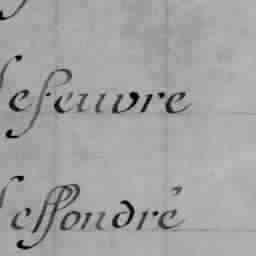 efeuvre
effondré